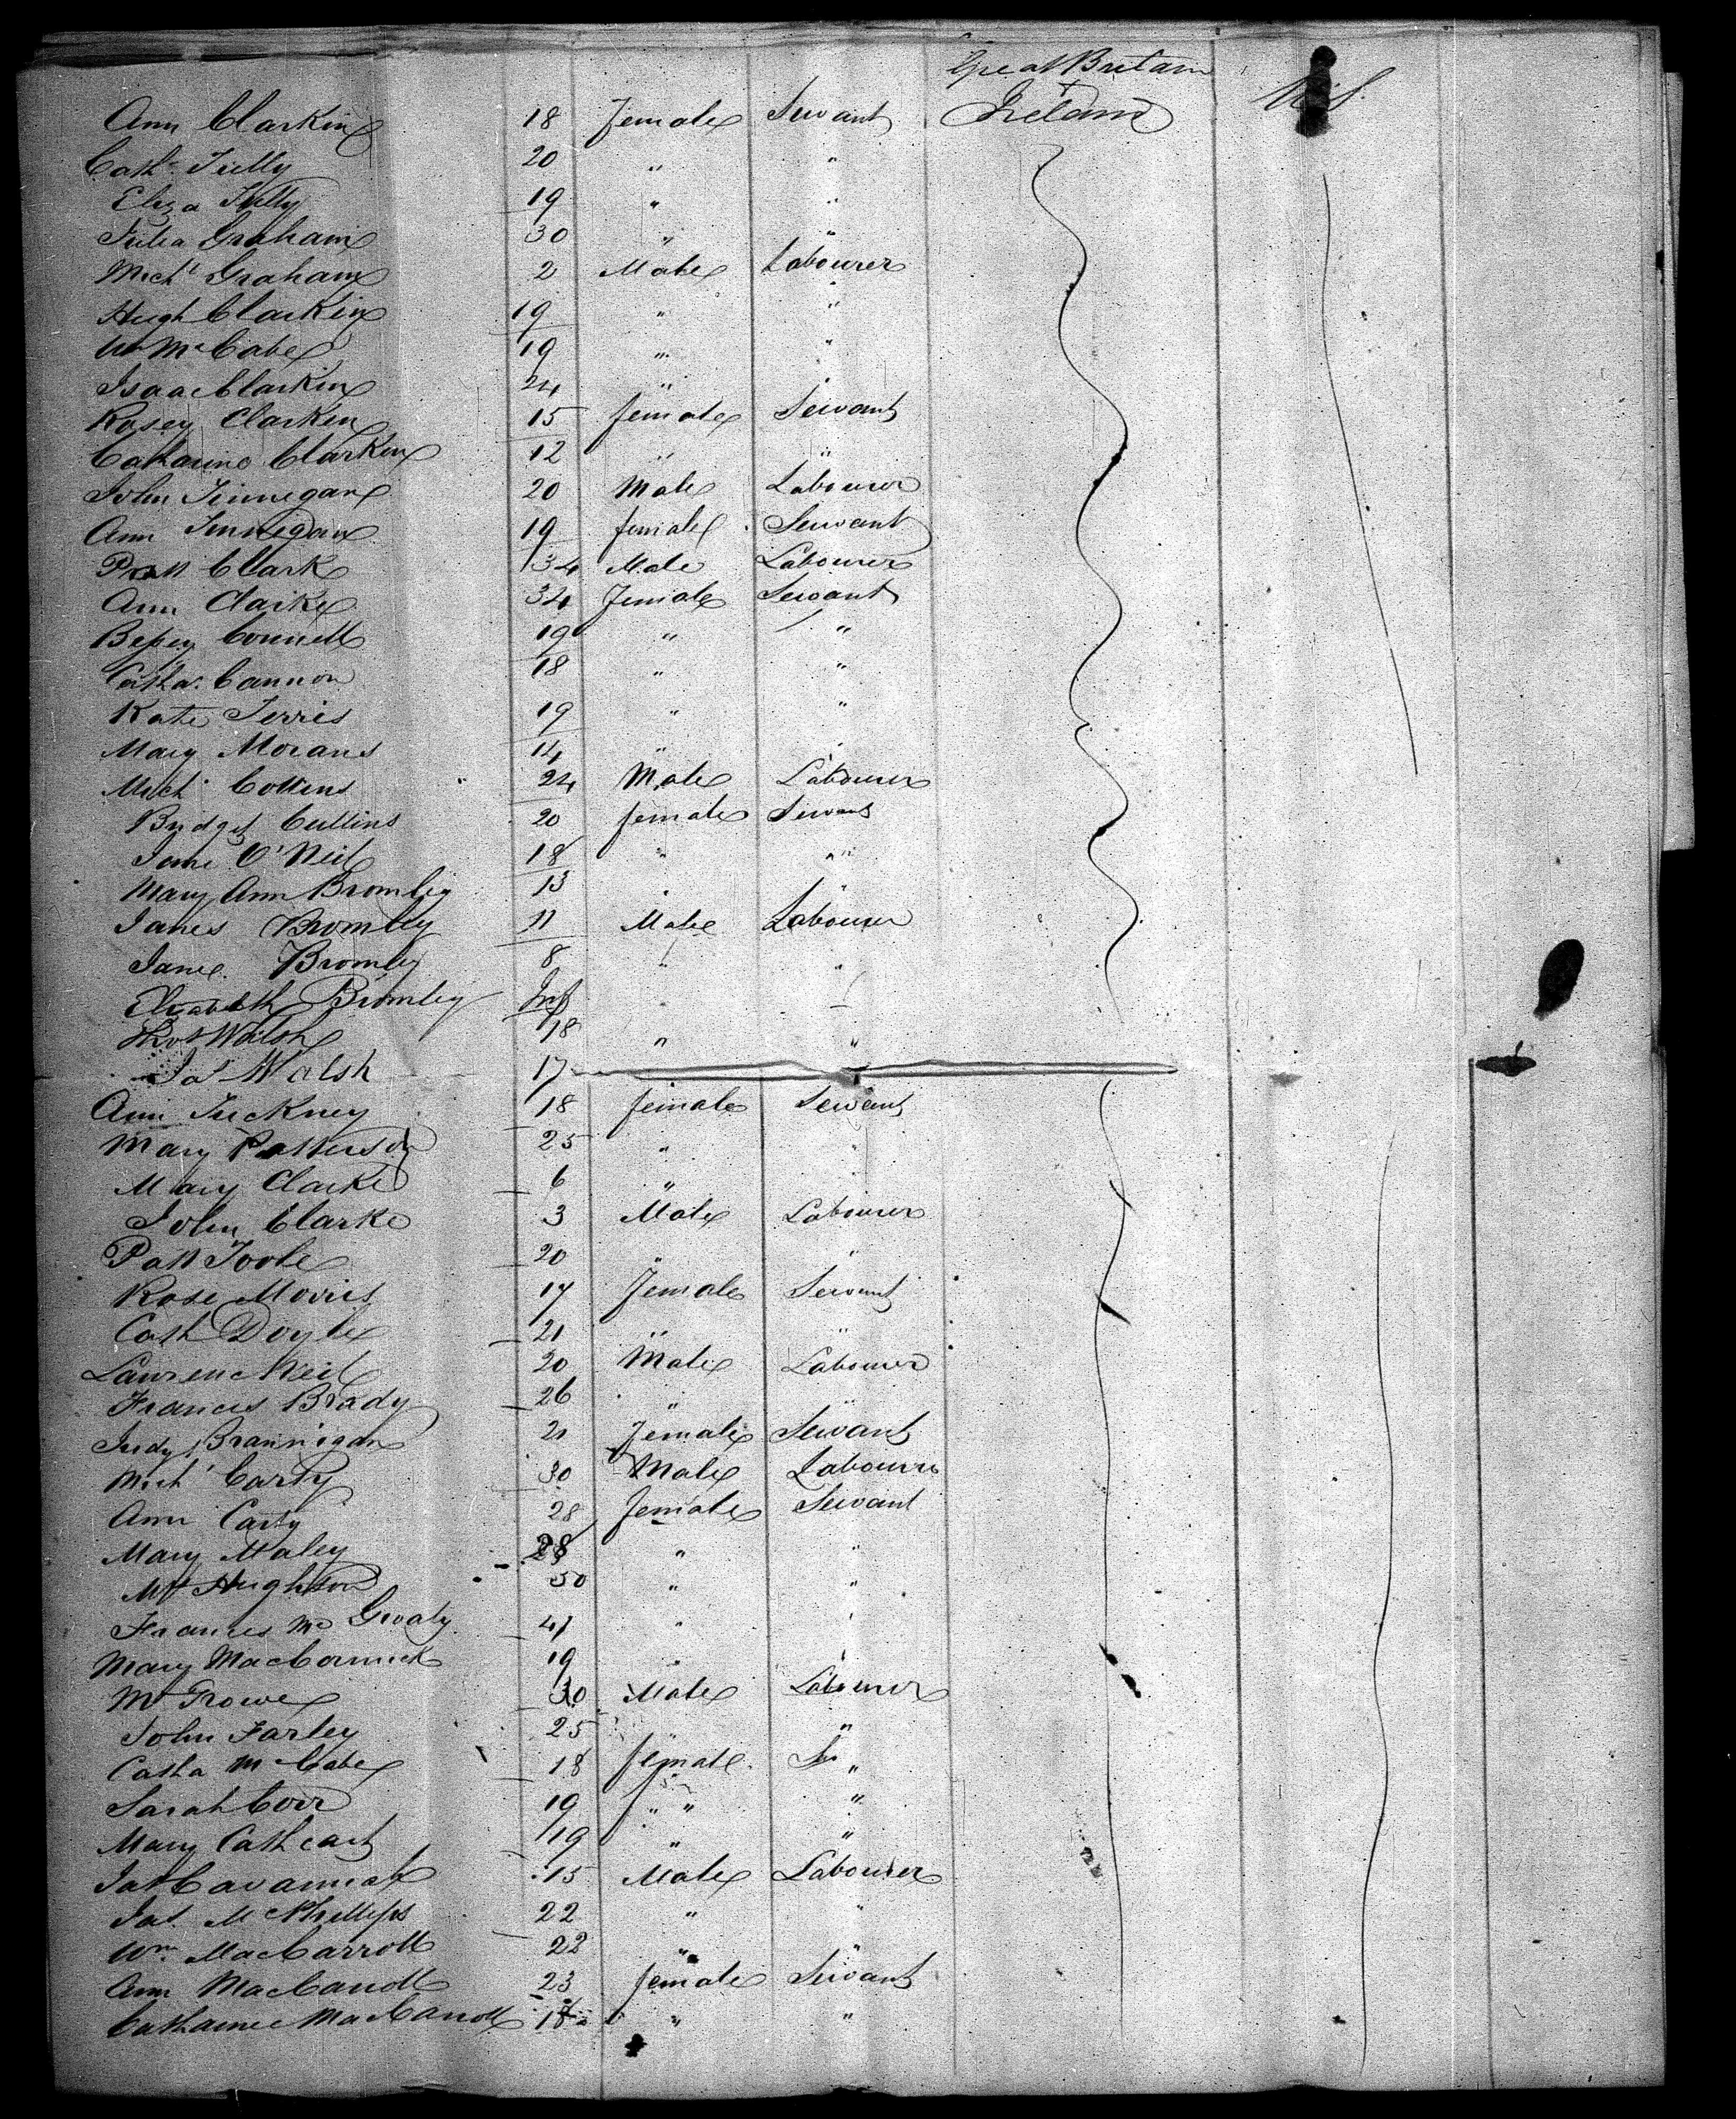 Great Britain
Ann Clarkin 18 female Servant + Ireland U.S.
Cath. Tully 20 " "
Eliza Tully 19 " "
Julia Graham 30 " "
Mich'l Graham 2 Male Labourer
Hugh Clarkin 19 " "
Wm McCabe 19 " "
Isaac Clarkin 24 " "
Rosey Clarken 15 female Servant
Catharine Clarken 12 " "
John Finnegan 20 Male Labourer
Ann Finnegan 19 female Servant
Patt Clark 34 Male Labourer
Ann Clarke 34 female Servant
Bessey Connell 19 " "
Catha. Cannon 18 " "
Kate Ferris 19 " "
Mary Morans 14 " "
Mich' Collins 24 Male Labourer
Bridget Cullins 20 female Servant
Jane O'Neil 18 " "
Mary Ann Bromley 13 " "
James Bromley 11 Male Labourer
Jane Bromley 8 " "
Elizabeth Bromley Inf " "
Walsh 18 " "
Jas Walsh 17
Ann Tuckney 18 female Servant
Mary Patterson 25 " "
Mary Clarke 6 " "
John Clarke 3 Male Labourer
Patt Toole 20 " "
Rose Morris 17 female Servant
Cath Doyle 21 " "
Lawrence Neil 20 Male Labourer
Frances Brady 26 " "
Judy Brannigan 21 female Servant
Mich' Carty 30 Male Labourer
Ann Carty 28 female Servant
Mary Maley 28 " "
Hughston 50 " "
Frances Mc 41 " "
Mary MacCormick 19 " "
30 Male Labourer
John Farley 25 " "
Catha McCabe 18 female Se "
Sarah Corr 19 " " "
Mary Cathcart 19 " "
Jas Cavannah 15 Male Labourer
Jas. McPhillips 22 " "
Wm. MacCarroll 22 " "
Ann MacCaroll 23 female Servant
Catharine MacCaroll 18 " "